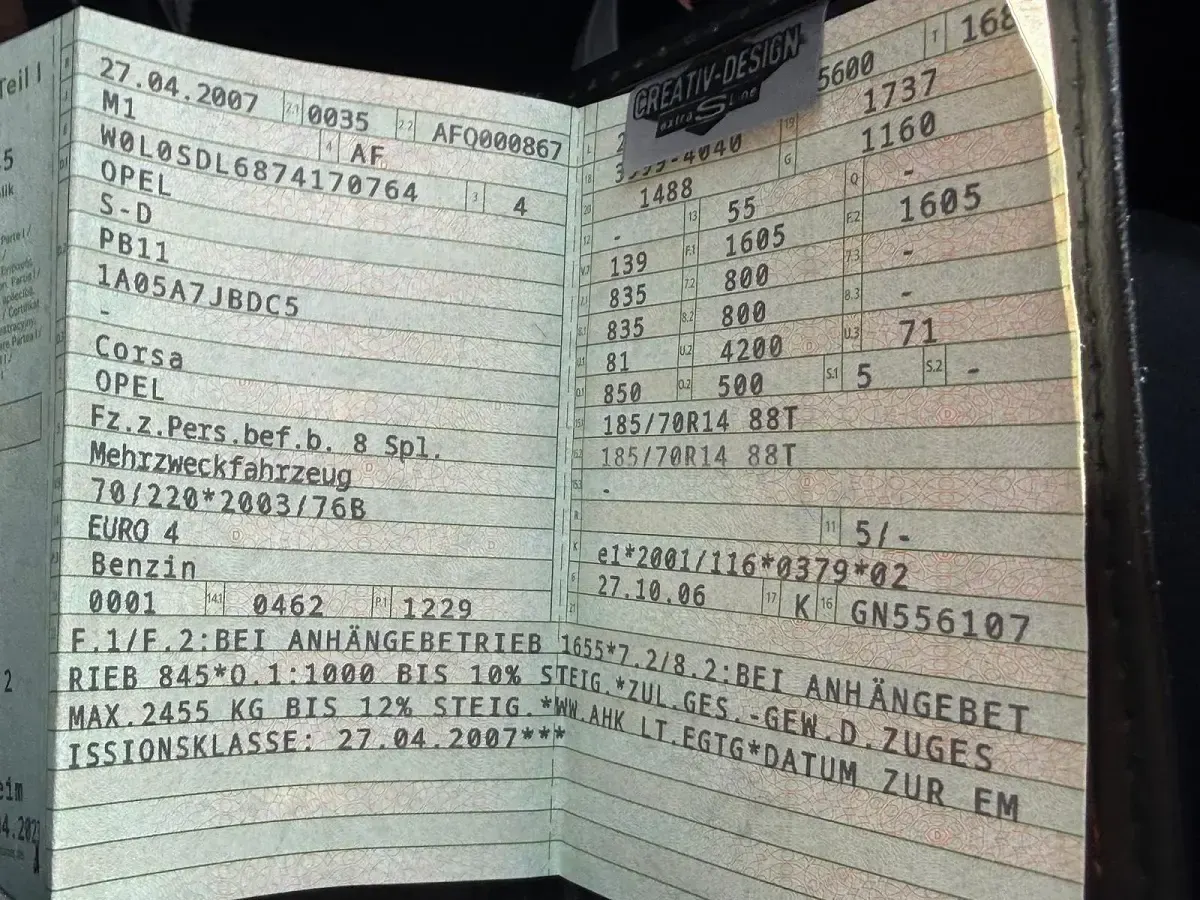 Teil I
27.04.2007 2.1 0035 2.2 AFQ000867
M1 4 AF
W0L0SDL6874170764 3 4
OPEL
S-D
PB11
1A05A7JBDC5
-
Corsa
OPEL
Fz.z.Pers.bef.b. 8 Spl.
Mehrzweckfahrzeug
70/220*2003/76B
EURO 4
Benzin
0001 14.1 0462 P.1 1229
CREATIV-DESIGN
extra S Line
5600 T 168
L 2 1737
18 3999-4040 G 1160
20 1488 Q -
12 - 13 55
V.7 139 F.1 1605 F.2 1605
7.1 835 7.2 800 7.3 -
8.1 835 8.2 800 8.3 -
U.1 81 U.2 4200 U.3 71
O.1 850 O.2 500 S.1 5 S.2 -
15.1 185/70R14 88T
15.2 185/70R14 88T
15.3 -
R 11 5/-
K e1*2001/116*0379*02
6 27.10.06 17 K 16 GN556107
21
F.1/F.2:BEI ANHÄNGEBETRIEB 1655*7.2/8.2:BEI ANHÄNGEBET
RIEB 845*O.1:1000 BIS 10% STEIG.*ZUL.GES.-GEW.D.ZUGES
MAX.2455 KG BIS 12% STEIG.*WW.AHK LT.EGTG*DATUM ZUR EM
ISSIONSKLASSE: 27.04.2007***